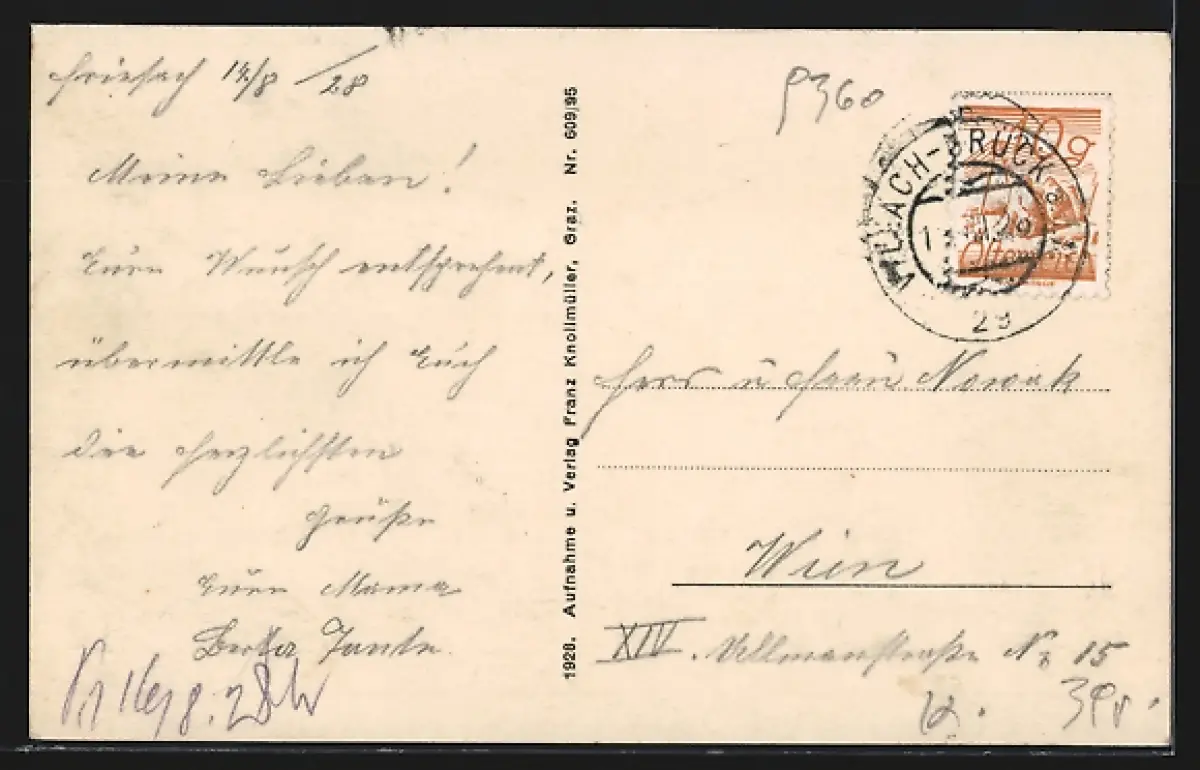 Friesach 14/8 /28
Meine Lieben!
Eurem Wunsch entsprechend,
übermittle ich Euch
die herzlichsten
Grüße
Eure Mama
Berta Tante.
1928. Aufnahme u. Verlag Franz Knollmüller, Graz. Nr. 609/95
9360
VILLACH-BRUCK a
29
10g
Österreich
Herr u Frau Nowak
Wien
XIV. Ullmanstraße Nr 15